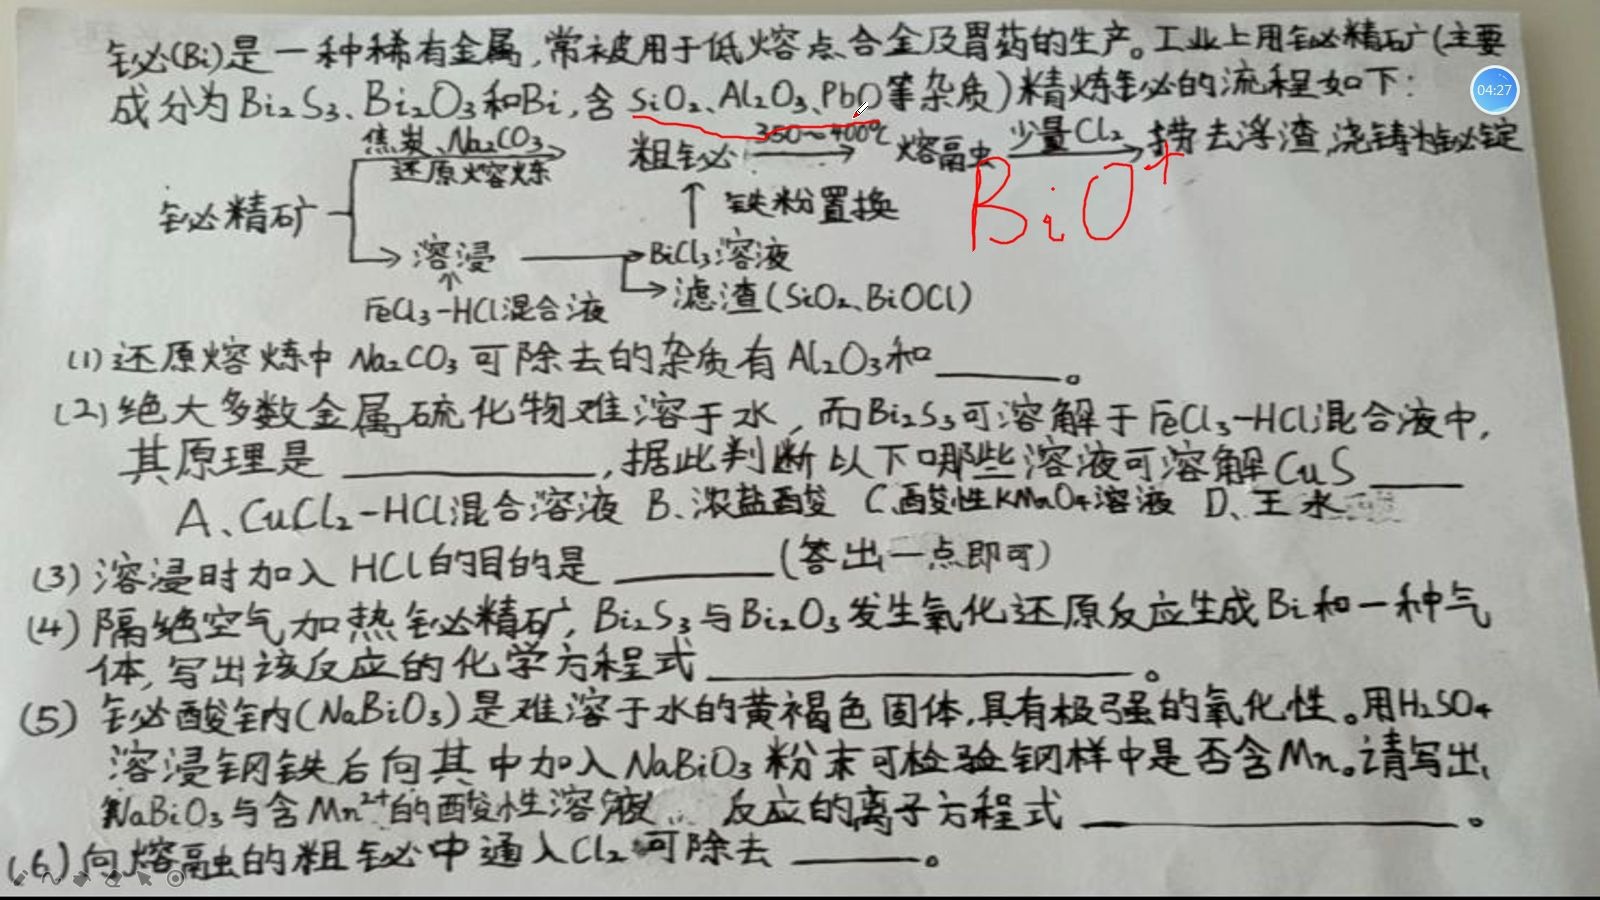 铋(Bi)是一种稀有金属,常被用于低熔点合金及胃药的生产。工业上用铋精矿(主要
成分为Bi₂S₃、Bi₂O₃和Bi,含SiO₂、Al₂O₃、PbO等杂质)精炼铋的流程如下:
04:27
焦炭、Na₂CO₃
还原熔炼
粗铋
350~400℃
熔融
少量Cl₂
捞去浮渣,浇铸为铋锭
BiO⁺
铋精矿
铁粉置换
溶浸
BiCl₃溶液
滤渣(SiO₂、BiOCl)
FeCl₃-HCl混合液
(1)还原熔炼中Na₂CO₃可除去的杂质有Al₂O₃和______。
(2)绝大多数金属硫化物难溶于水,而Bi₂S₃可溶解于FeCl₃-HCl混合液中,
其原理是______,据此判断以下哪些溶液可溶解CuS____
A、CuCl₂-HCl混合溶液 B、浓盐酸 C、酸性KMnO₄溶液 D、王水
(3)溶浸时加入HCl的目的是______(答出一点即可)
(4)隔绝空气加热铋精矿,Bi₂S₃与Bi₂O₃发生氧化还原反应生成Bi和一种气
体,写出该反应的化学方程式____________。
(5)铋酸钠(NaBiO₃)是难溶于水的黄褐色固体,具有极强的氧化性。用H₂SO₄
溶浸钢铁后向其中加入NaBiO₃粉末可检验钢样中是否含Mn。请写出
NaBiO₃与含Mn²⁺的酸性溶液反应的离子方程式____________。
(6)向熔融的粗铋中通入Cl₂可除去______。